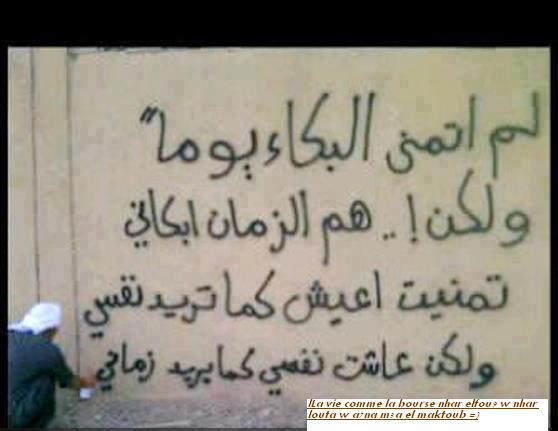 لم اتمنى البكاء يوما"
ولكن ! .. هم الزمان ابكاني
تمنيت اعيش كما تريد نفسي
ولكن عاشت نفسي كما يريد زماني
lLa vie comme la bourse nhar elfou9 w nhar
louta w a7na m3a el maktoub =)